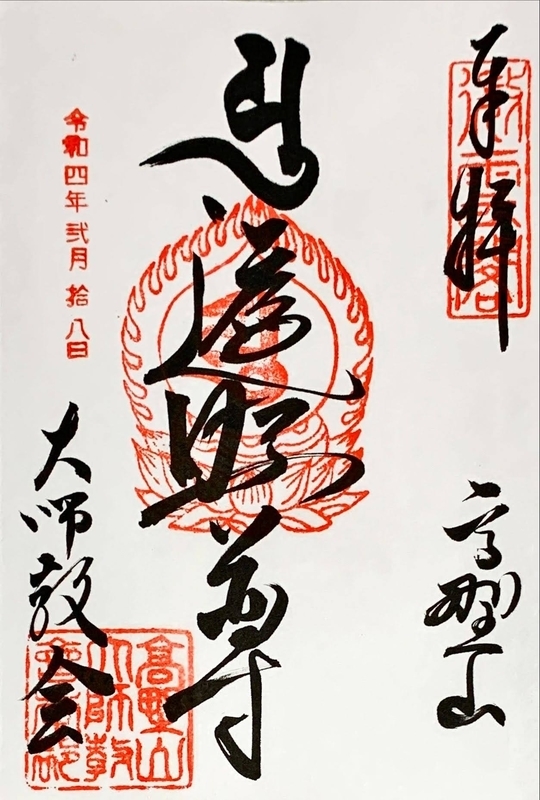 奉拝
高野山
遍照尊
令和四年弐月拾八日
大師教会
高野山大師教會本部